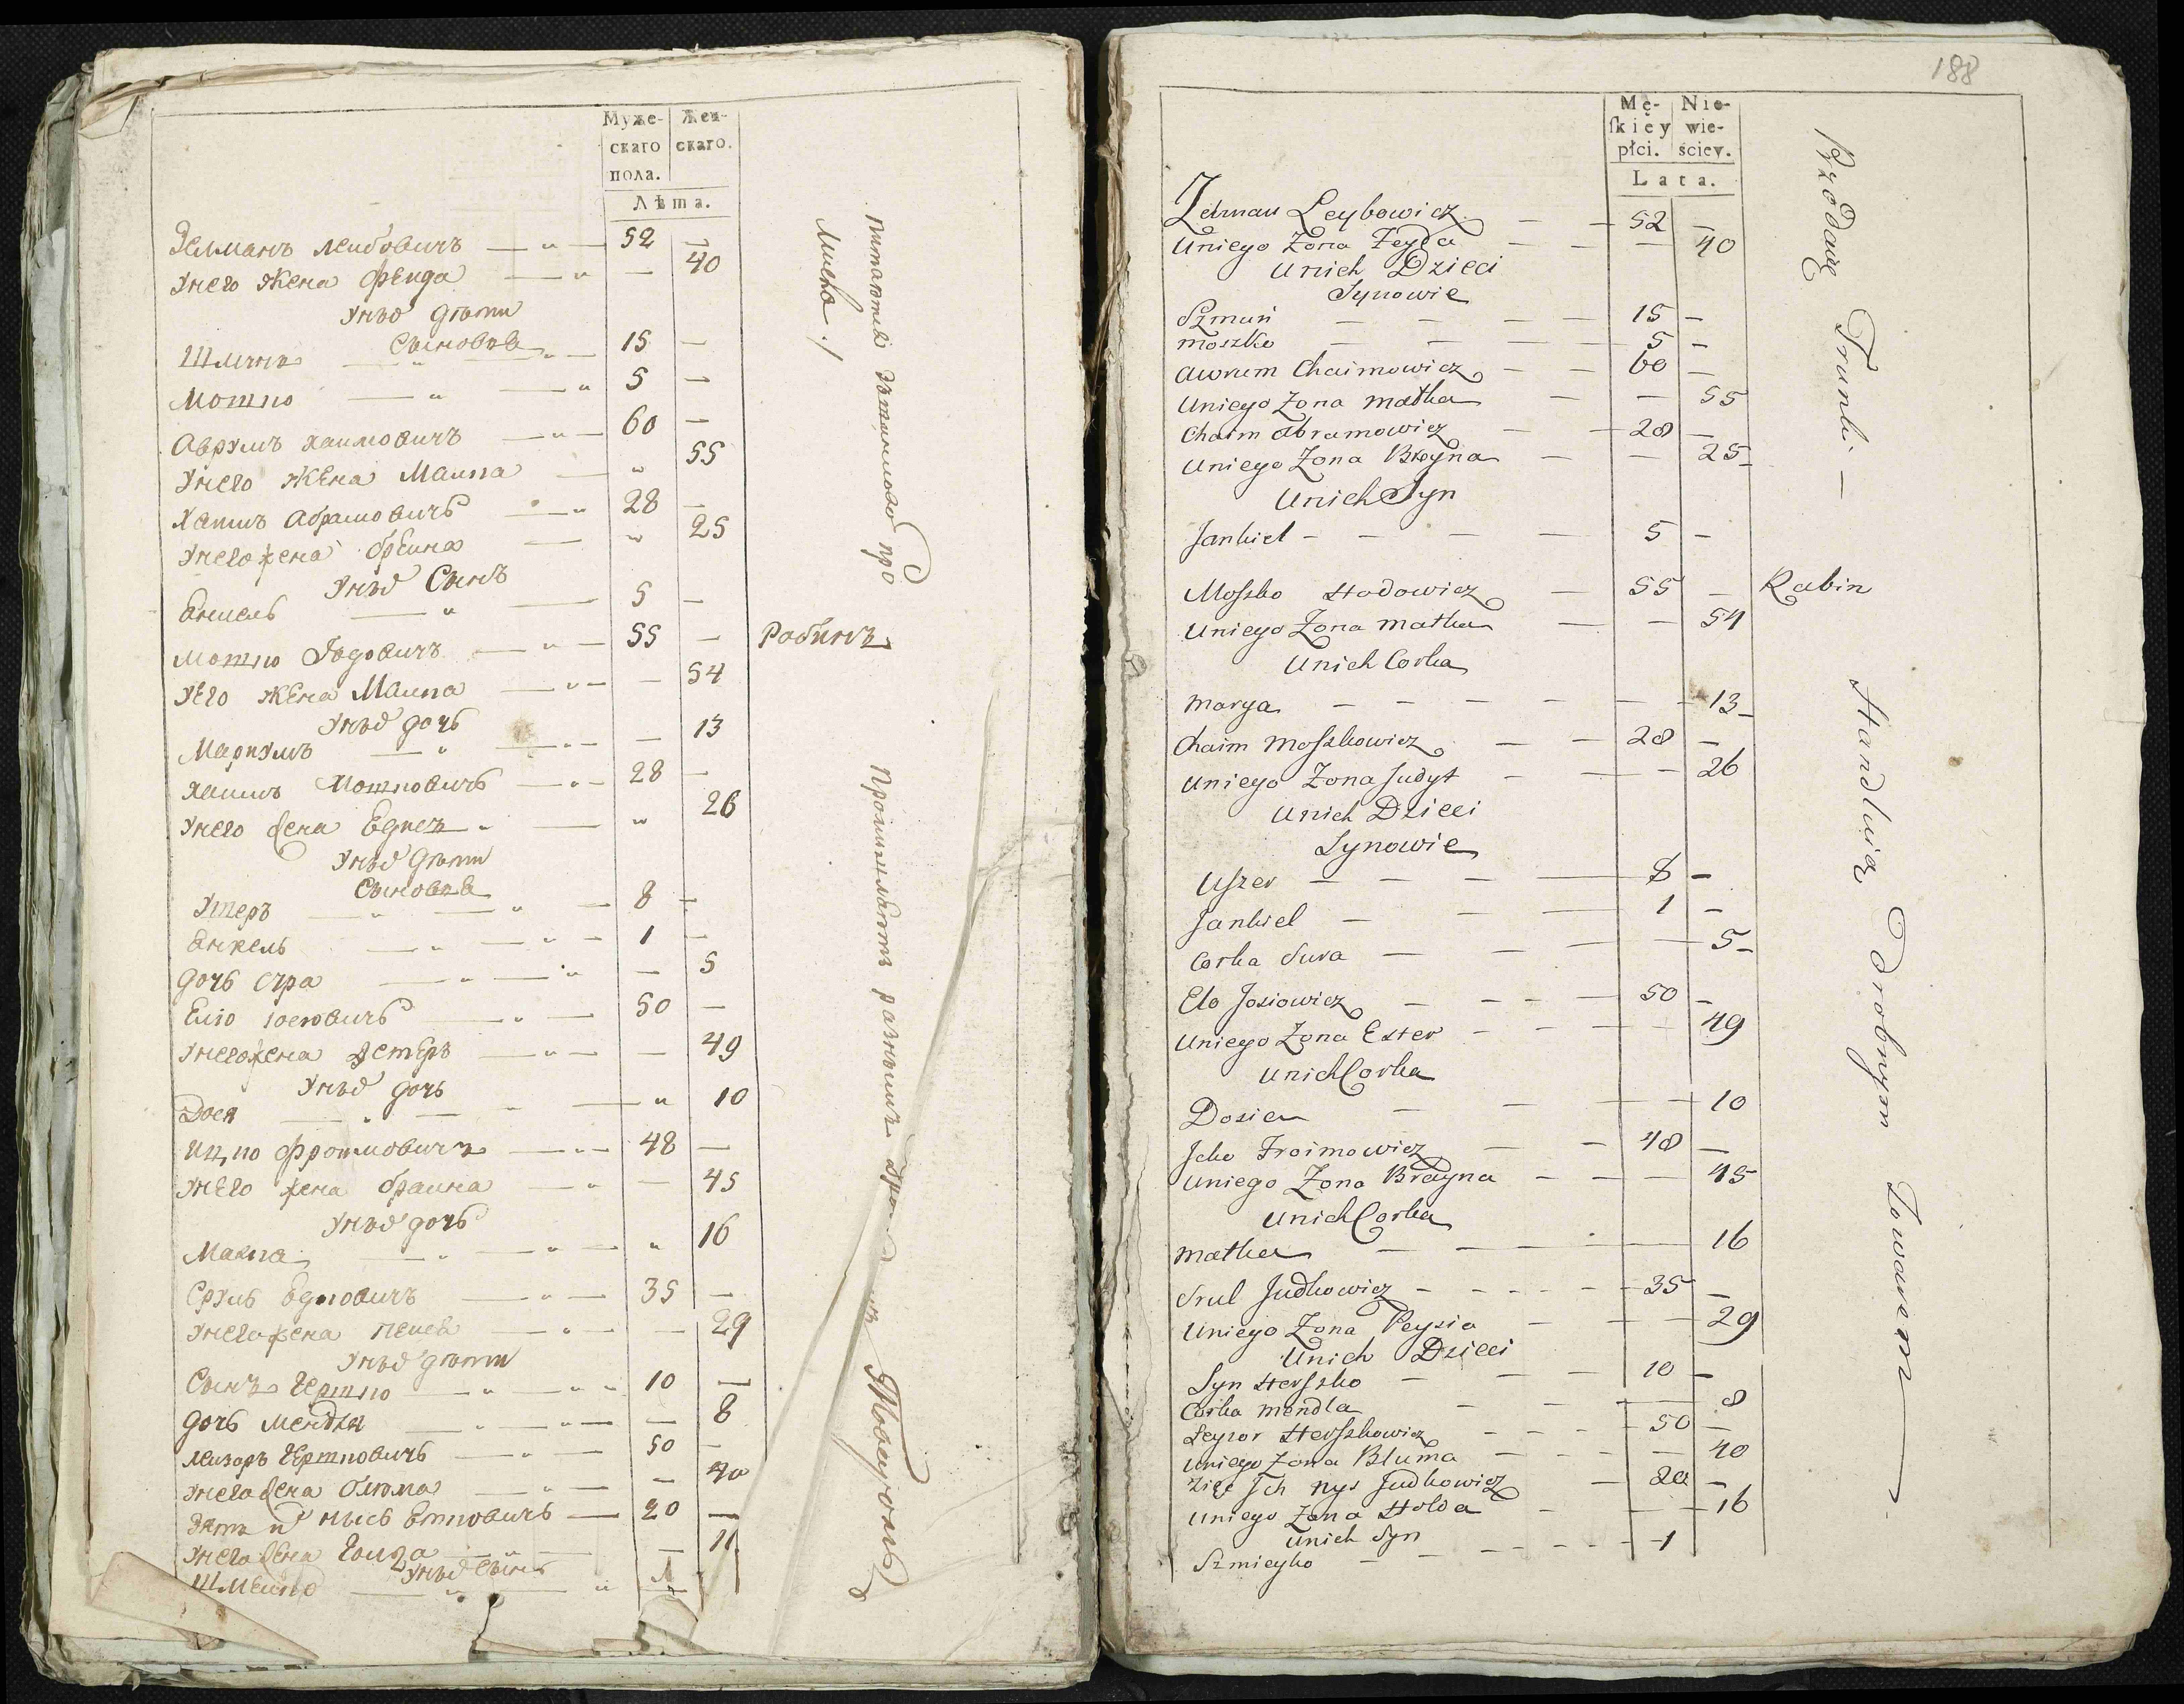 Муже- Жен-
скаго скаго.
пола.
Лѣта.
Зельманъ Лейбовичъ 52 —
Унего жена Фейда — 40
Унихъ дѣти
Сыновья
Шмунъ 15 —
Мошко 5 —
Аврумъ Хаимовичъ 60 —
Унего жена Малка 55
Хаимъ Абрамовичъ 28 —
Унего жена Брейна 25
Унихъ Сынъ
Янкель 5 —
Мошко Годовичъ 55 — Рабинъ
Унего жена Малка — 54
Унихъ дочь
13
Хаимъ Мошковичъ 28 —
Унего жена 26
Унихъ дѣти
Сыновья
Ушеръ 8 —
Янкель 1 —
дочь Сура — 5
Елю Иосіовичъ 50 —
Унего жена Эстеръ — 49
Унихъ дочь
Дося 10
Ицко Фроимовичъ 48 —
Унего жена Браина — 45
Унихъ дочь
Малка 16
Сруль Юдковичъ 35 —
Унего жена Пейся — 29
Унихъ дѣти
Сынъ Гершко 10 —
дочь Мендля — 8
Лейзоръ Гершковичъ 50 —
Унего жена Блюма — 40
Зять ихъ Нысь 20 —
Унего жена Голда —
Унихъ Сынъ
Шмейко 1
питаются про
Промишляютъ разнымъ Товаромъ
188
Mę- Nie-
ſkiéy wie-
płci. ściey.
Lata.
Zelman Leybowicz 52 —
Uniego Zona Feyda — 40
Unich Dzieci
Synowie
Szmuń 15 —
Moszko 5 —
Awrum Chaimowicz 60 —
Uniego Zona Matka — 55
Chaim Abramowicz 28 —
Uniego Zona Breyna — 25
Unich Syn
Jankiel 5 —
Moszko Hodowicz 55 — Rabin
Uniego Zona Matka — 54
Unich Corka
Marya 13
Chaim Moszkowicz 28 —
Uniego Zona Judyt — 26
Unich Dzieci
Synowie
Uszer 8 —
Jankiel 1 —
Corka Sura — 5
Elo Josiowicz 50 —
Uniego Zona Ester 49
Unich Corka
Dosia 10
Jcko Froimowicz 48 —
Uniego Zona Brayna — 45
Unich Corka
Matka 16
Srul Judkowicz 35 —
Uniego Zona Peysia — 29
Unich Dzieci
Syn Herszko 10 —
Corka Mendla 8
Leyzor Herszkowicz 50 —
Uniego Zona Bluma — 40
Zięć Jch Nys Judkowicz 20 —
Uniego Zona Holda — 16
Unich Syn
Szmieyko 1
Przedaią Trunki —
Handluią Drobnym Towarem